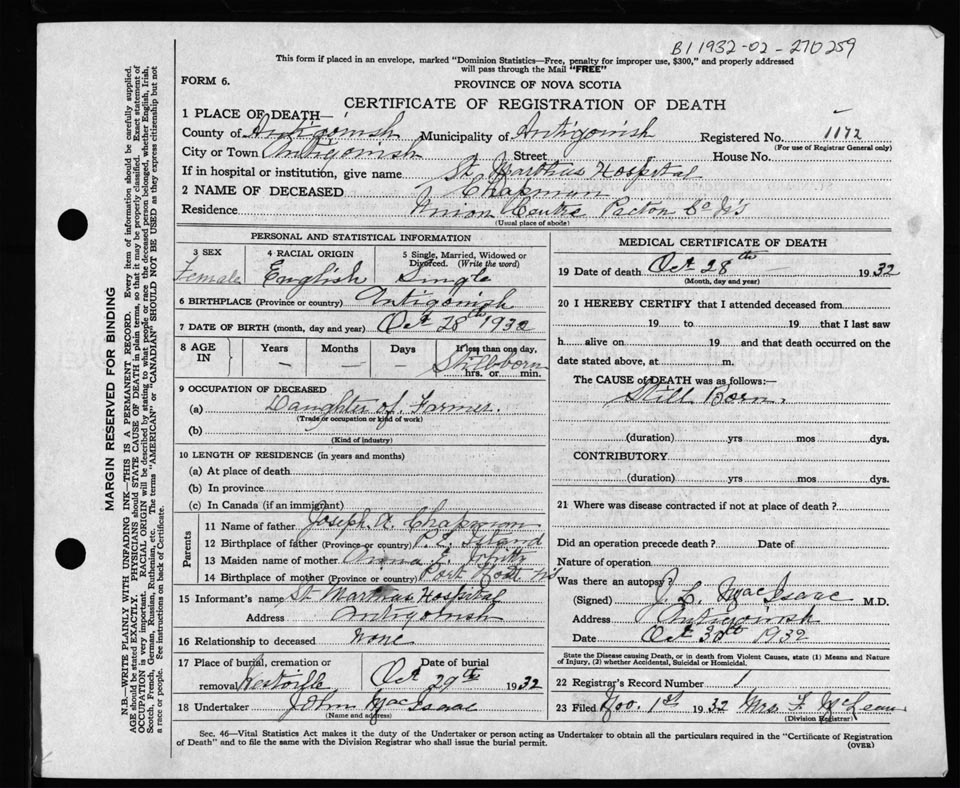 B1 1932-02-270259
This form if placed in an envelope, marked "Dominion Statistics—Free, penalty for improper use, $300," and properly addressed
will pass through the Mail "FREE"
FORM 6.
PROVINCE OF NOVA SCOTIA
CERTIFICATE OF REGISTRATION OF DEATH
1 PLACE OF DEATH—
County of Antigonish Municipality of Antigonish Registered No. 1172
(For use of Registrar General only)
City or Town Antigonish Street House No.
If in hospital or institution, give name St. Marthas Hospital
2 NAME OF DECEASED Chapman
Residence Union Centre Pictou Co N.S
(Usual place of abode)
PERSONAL AND STATISTICAL INFORMATION
3 SEX
Female
4 RACIAL ORIGIN
English
5 Single, Married, Widowed or
Divorced. (Write the word)
Single
6 BIRTHPLACE (Province or country) Antigonish
7 DATE OF BIRTH (month, day and year) Oct 28th 1932
8 AGE
IN
Years
—
Months
—
Days
—
If less than one day,
Stillborn
hrs. or min.
9 OCCUPATION OF DECEASED
(a) Daughter of Farmer.
(Trade or occupation or kind of work)
(b)
(Kind of industry)
10 LENGTH OF RESIDENCE (in years and months)
(a) At place of death
(b) In province
(c) In Canada (if an immigrant)
Parents
11 Name of father Joseph A. Chapman
12 Birthplace of father (Province or country) P. E. Island
13 Maiden name of mother E.
14 Birthplace of mother (Province or country) Port NS
15 Informant's name St Marthas Hospital
Address Antigonish
16 Relationship to deceased None
17 Place of burial, cremation or
removal Westville
Date of burial
Oct 29th 1932
18 Undertaker John MacIsaac
(Name and address)
MEDICAL CERTIFICATE OF DEATH
19 Date of death Oct 28th — 1932
(Month, day and year)
20 I HEREBY CERTIFY that I attended deceased from
19 to 19 that I last saw
h alive on 19 and that death occurred on the
date stated above, at m.
The CAUSE of DEATH was as follows:—
Still Born.
(duration) yrs mos dys.
CONTRIBUTORY
(duration) yrs mos dys.
21 Where was disease contracted if not at place of death?
Did an operation precede death? Date of
Nature of operation
Was there an autopsy?
(Signed) J. L. MacIsaac M.D.
Address Antigonish
Date Oct 30th 1932
State the Disease causing Death, or in death from Violent Causes, state (1) Means and Nature
of Injury, (2) whether Accidental, Suicidal or Homicidal.
22 Registrar's Record Number 1
23 Filed Nov. 1st 1932 Mrs F. McLean
(Division Registrar)
Sec. 46—Vital Statistics Act makes it the duty of the Undertaker or person acting as Undertaker to obtain all the particulars required in the "Certificate of Registration
of Death" and to file the same with the Division Registrar who shall issue the burial permit.
(OVER)
MARGIN RESERVED FOR BINDING
N.B.—WRITE PLAINLY WITH UNFADING INK—THIS IS A PERMANENT RECORD. Every item of information should be carefully supplied.
AGE should be stated EXACTLY. PHYSICIANS should STATE CAUSE OF DEATH in plain terms, so that it may be properly classified. Exact statement of
OCCUPATION is very important. RACIAL ORIGIN will be described by stating to what people or race the deceased person belonged, whether English, Irish,
Scotch, French, German, Russian, Ruthenian, etc. The terms "AMERICAN" or "CANADIAN" SHOULD NOT BE USED as they express citizenship but not
a race or people. See instructions on back of Certificate.